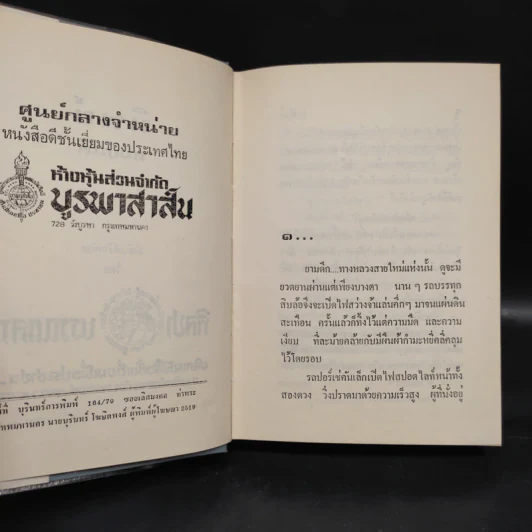 ศูนย์กลางจำหน่าย
หนังสือดีชั้นเยี่ยมของประเทศไทย
ห้างหุ้นส่วนจำกัด
บูรพาสาส์น
728 วังบูรพา กรุงเทพมหานคร
บุรินทร์การพิมพ์ 164/79 ซอยเลิศมงคล ท่าพระ
นายบุรินทร์ โฆษิตพงส์ ผู้พิมพ์ผู้โฆษณา 2519
๑...
ยามดึก...ทางหลวงสายใหม่แห่งนั้น ดูจะมี
ยวดยานผ่านแต่เพียงบางตา นาน ๆ รถบรรทุก
สิบล้อจึงจะเปิดไฟสว่างจ้าแล่นคึก ๆ มาจนแผ่นดิน
สะเทือน ครั้นแล้วก็ทิ้งไว้แต่ความมืด และความ
เงียบ ที่ละม้ายคล้ายกับมีผืนผ้ากำมะหยี่คลี่คลุม
ไว้โดยรอบ
รถปอร์เช่คันเล็กเปิดไฟสปอตไลท์หน้าทั้ง
สองดวง วิ่งปราดมาด้วยความเร็วสูง ผู้ที่นั่งอยู่